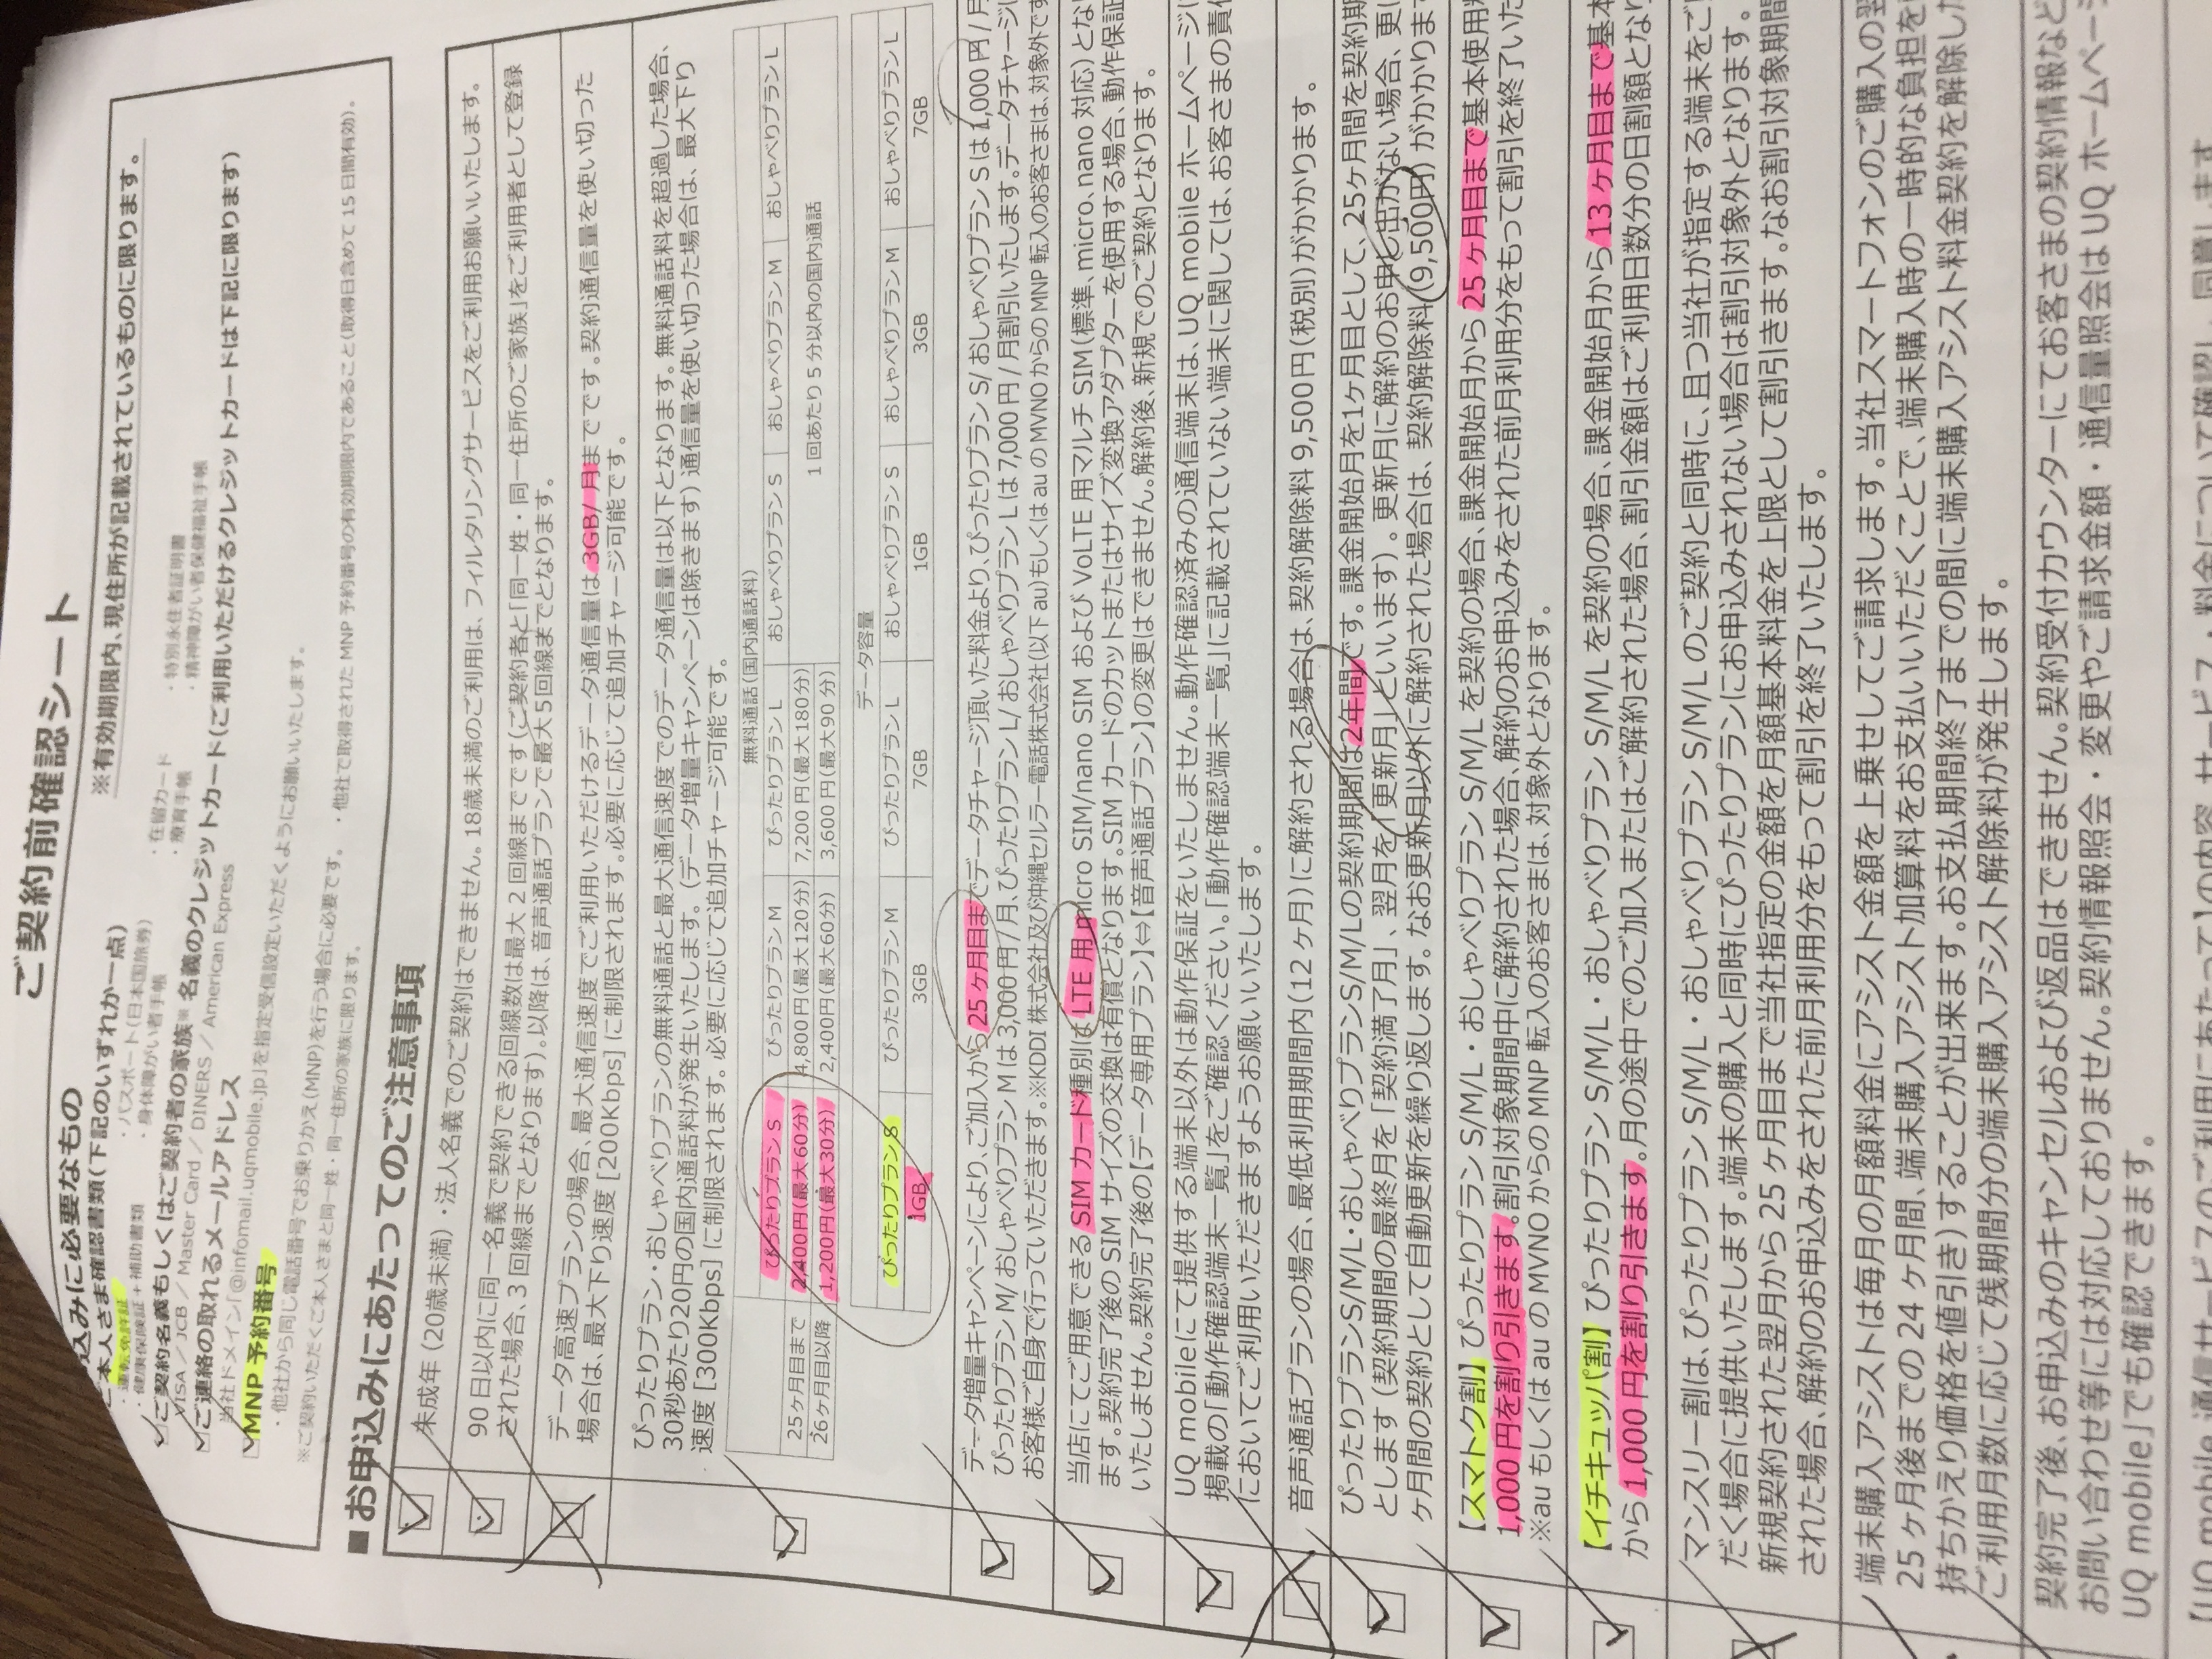 ご契約前確認シート
込みに必要なもの
※有効期限内、現住所が記載されているものに限ります。
ご本人さま確認書類(下記のいずれか一点)
・運転免許証
・パスポート(日本国旅券)
・在留カード
・特別永住者証明書
・健康保険証+補助書類
・身体障がい者手帳
・療育手帳
・精神障がい者保健福祉手帳
ご契約名義もしくはご契約者の家族※ 名義のクレジットカード(ご利用いただけるクレジットカードは下記に限ります)
VISA / JCB / Master Card / DINERS / American Express
ご連絡の取れるメールアドレス
当社ドメイン[@infomail.uqmobile.jp]を指定受信設定いただくようにお願いいたします。
MNP 予約番号
・他社から同じ電話番号でお乗りかえ(MNP)を行う場合に必要です。 ・他社で取得された MNP 予約番号の有効期限内であること(取得日含めて 15 日間有効)。
※ご契約いただくご本人さまと同一姓・同一住所の家族に限ります。
■お申込みにあたってのご注意事項
未成年 (20歳未満) ・法人名義でのご契約はできません。18歳未満のご利用は、フィルタリングサービスをご利用お願いいたします。
90 日以内に同一名義で契約できる回線数は最大 2 回線までです (ご契約者と「同一姓・同一住所のご家族」をご利用者として登録
された場合、3 回線までとなります)。以降は、音声通話プランで最大 5 回線までとなります。
データ高速プランの場合、最大通信速度でご利用いただけるデータ通信量は 3GB/月までです。契約通信量を使い切った
場合は、最大下り速度 [200Kbps] に制限されます。必要に応じて追加チャージ可能です。
ぴったりプラン・おしゃべりプランの無料通話と最大通信速度でのデータ通信量は以下となります。無料通話料を超過した場合、
30秒あたり20円の国内通話料が発生いたします。(データ増量キャンペーンは除きます) 通信量を使い切った場合は、最大下り
速度 [300Kbps] に制限されます。必要に応じて追加チャージ可能です。
無料通話(国内通話料)
ぴったりプラン S ぴったりプラン M ぴったりプラン L おしゃべりプラン S おしゃべりプラン M おしゃべりプラン L
25ヶ月目まで 2,400円(最大60分) 4,800円(最大120分) 7,200円(最大180分) 1 回あたり 5 分以内の国内通話
26ヶ月目以降 1,200円(最大30分) 2,400円(最大60分) 3,600円(最大90分)
データ容量
ぴったりプラン S ぴったりプラン M ぴったりプラン L おしゃべりプラン S おしゃべりプラン M おしゃべりプラン L
1GB 3GB 7GB 1GB 3GB 7GB
データ増量キャンペーンにより、ご加入から 25 ヶ月目までデータチャージ頂いた料金より、ぴったりプラン S/ おしゃべりプラン S は 1,000 円 / 月
ぴったりプラン M/ おしゃべりプラン M は 3,000 円 / 月、ぴったりプラン L/ おしゃべりプラン L は 7,000 円 / 月割引いたします。データチャージは
お客様ご自身で行っていただきます。※KDDI 株式会社及び沖縄セルラー電話株式会社(以下 au)もしくは au の MVNO からの MNP 転入のお客さまは、対象外です
当店にてご用意できる SIM カード種別は LTE 用 micro SIM/nano SIM および VoLTE 用マルチ SIM(標準、micro、nano 対応) とな
ます。契約完了後の SIM サイズの交換は有償となります。SIM カードのカットまたはサイズ変換アダプターを使用する場合、動作保証
いたしません。契約完了後の【データ専用プラン】⇔【音声通話プラン】の変更はできません。解約後、新規でのご契約となります。
UQ mobile にて提供する端末以外は動作保証をいたしません。動作確認済みの通信端末は、UQ mobile ホームページに
掲載の「動作確認端末一覧」をご確認ください。「動作確認端末一覧」に記載されていない端末に関しては、お客さまの責任
においてご利用いただきますようお願いいたします。
音声通話プランの場合、最低利用期間内(12 ヶ月)に解約される場合は、契約解除料 9,500 円 (税別) がかかります。
ぴったりプランS/M/L・おしゃべりプランS/M/Lの契約期間は2年間です。課金開始月を1ヶ月目として、25ヶ月間を契約期
とします (契約期間の最終月を「契約満了月」、翌月を「更新月」といいます)。更新月に解約のお申し出がない場合、更に
ヶ月間の契約として自動更新を繰り返します。なお更新月以外に解約された場合は、契約解除料 (9,500円) がかかりま
【スマトク割】ぴったりプラン S/M/L・おしゃべりプラン S/M/L を契約の場合、課金開始月から 25 ヶ月目まで基本使用料
1,000 円を割り引きます。割引対象期間中に解約された場合、解約のお申込みをされた前月利用分をもって割引を終了いた
※au もしくは au の MVNO からの MNP 転入のお客さまは、対象外となります。
【イチキュッパ割】ぴったりプラン S/M/L・おしゃべりプラン S/M/L を契約の場合、課金開始月から 13 ヶ月目まで基本
から 1,000 円を割り引きます。月の途中でのご加入またはご解約された場合、割引金額はご利用日数分の日割額となり
マンスリー割は、ぴったりプラン S/M/L・おしゃべりプラン S/M/L のご契約と同時に、且つ当社が指定する端末をご
だく場合に提供いたします。端末の購入と同時にぴったりプランにお申込みされない場合は割引対象外となります。
新規契約された翌月から 25 ヶ月目まで当社指定の金額を月額基本料金を上限として割引きます。なお割引対象期間
された場合、解約のお申込みをされた前月利用分をもって割引を終了いたします。
端末購入アシストは毎月の月額料金にアシスト金額を上乗せしてご請求します。当社スマートフォンのご購入の翌
25 ヶ月後までの 24 ヶ月間、端末購入アシスト加算料をお支払いいただくことで、端末購入時の一時的な負担を
持ちかえり価格を値引き) することが出来ます。お支払期間終了までの間に端末購入アシスト料金契約を解除した
ご利用月数に応じて残期間分の端末購入アシスト解除料が発生します。
契約完了後、お申込みのキャンセルおよび返品はできません。契約受付カウンターにてお客さまの契約情報など
お問い合わせ等には対応しておりません。契約情報照会・変更やご請求金額・通信量照会は UQ ホームページ
UQ mobile」でも確認できます。